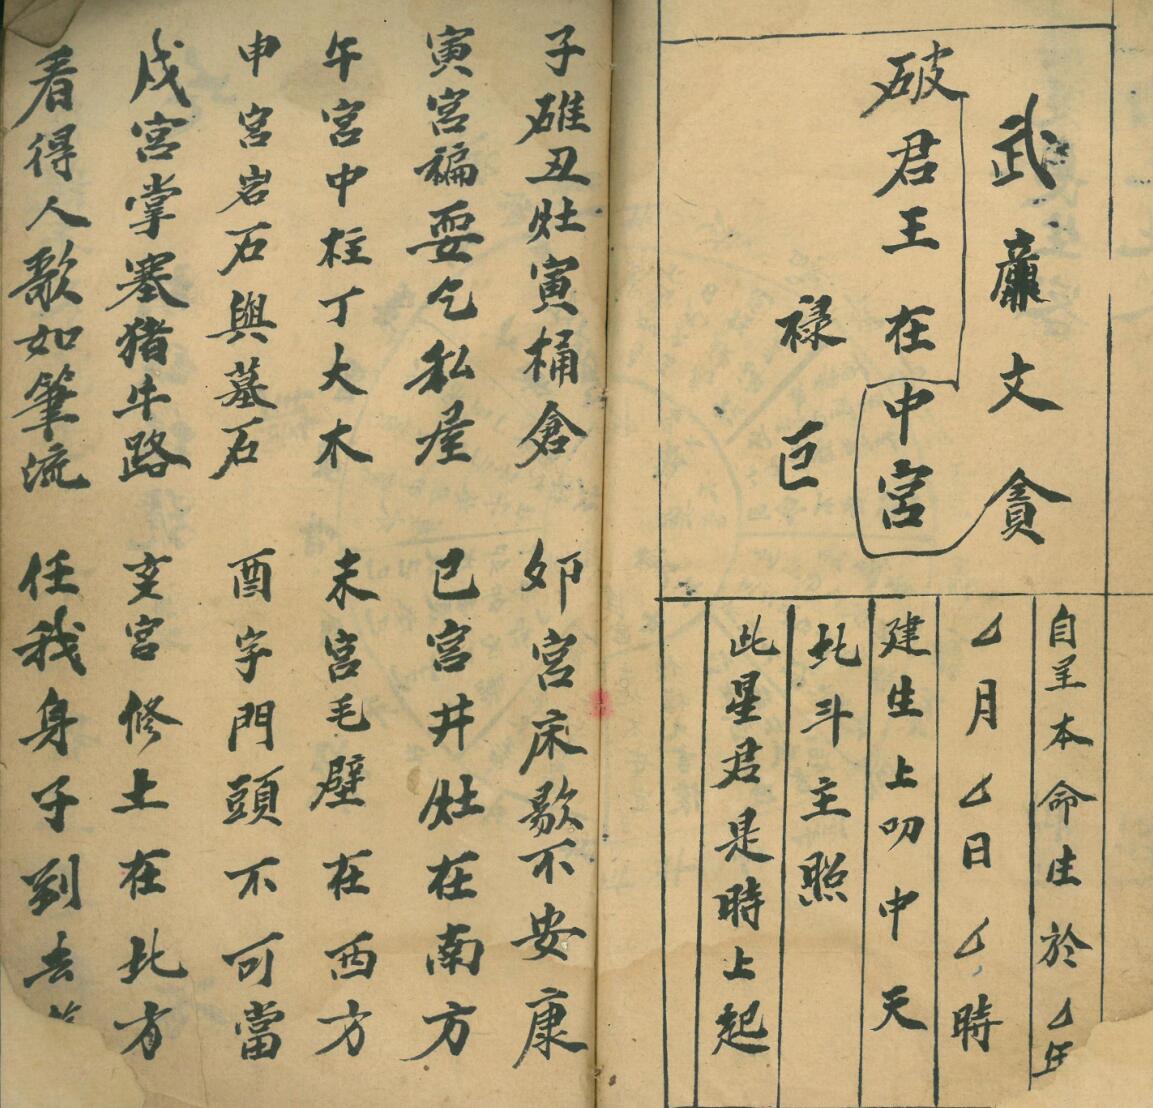 武廉文貪
破君王在中宮
禄巨
自呈本命生於厶年
厶月厶日厶時
建生上叨中天
北斗主照
此星君是時上起
子碓丑灶寅桶倉 卯宮床歇不安康
寅宮褊耍乞私屋 巳宮井灶在南方
午宮中柱丁大木 未宮毛壁在西方
申宮岩石與墓石 酉字門頭不可當
戌宮掌塞猪牛路 亥宮修土在北方
看得人歌如筆流 任我身子到去